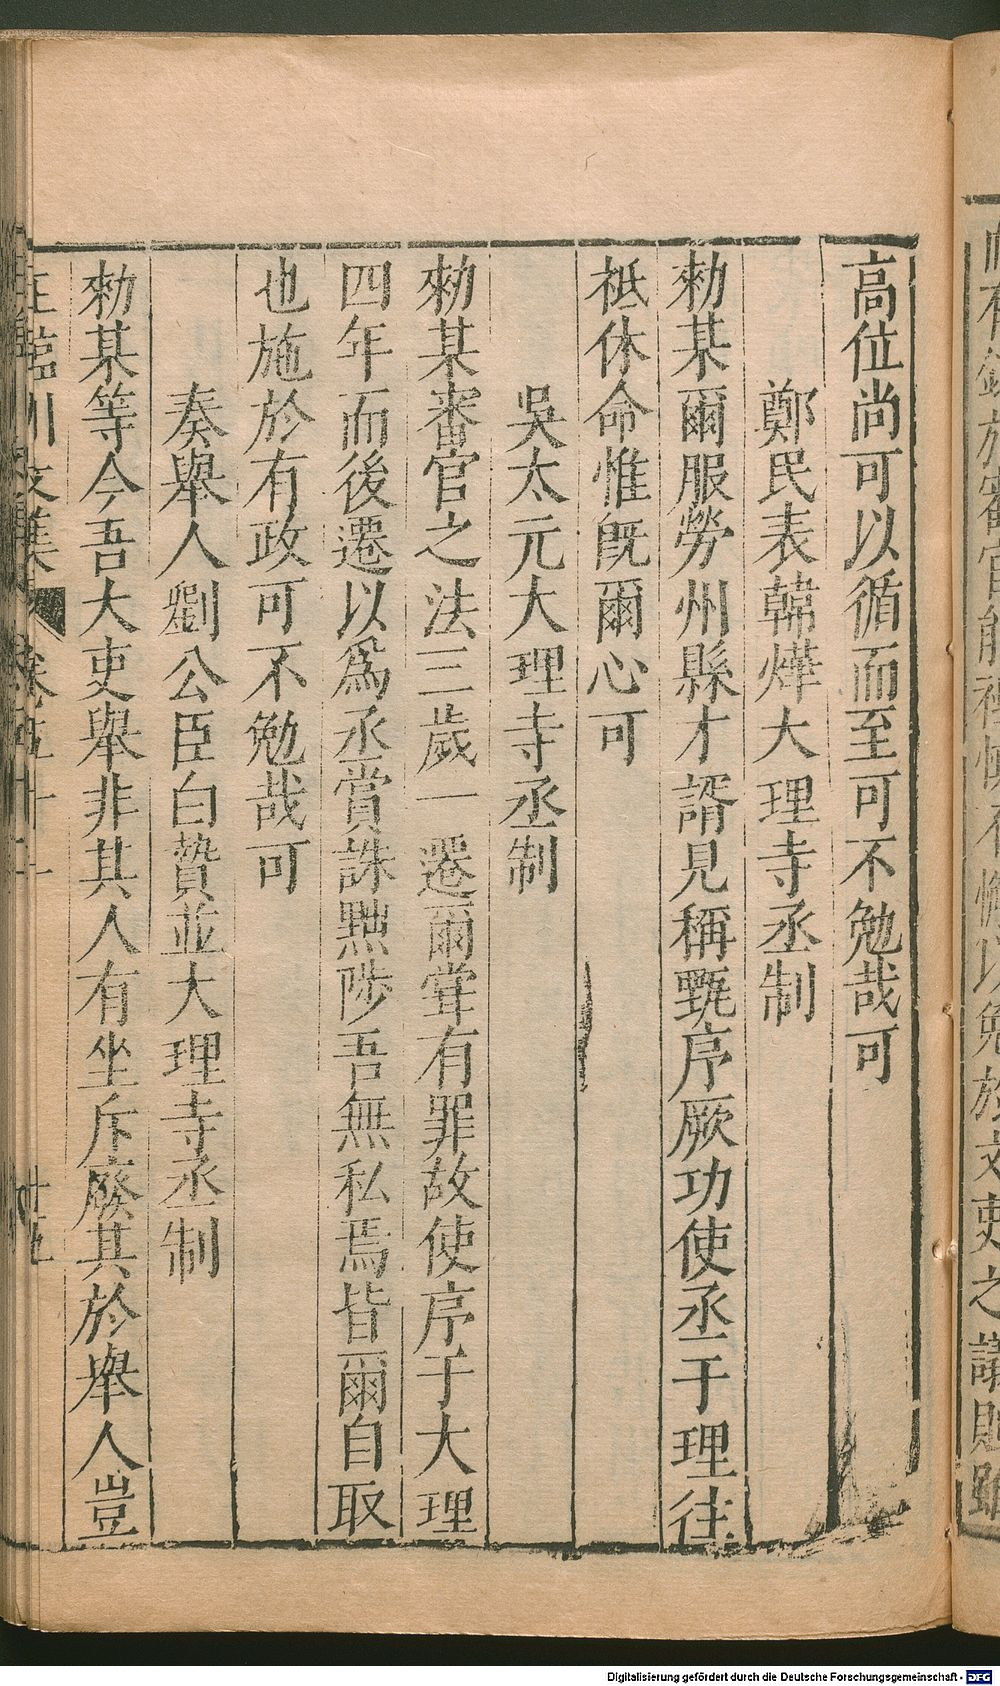 高位尚可以循而至可不勉哉可
鄭民表韓燁大理寺丞制
勑某爾服勞州縣才諝見稱甄序厥功使丞于理往
祗休命惟旣爾心可
吳太元大理寺丞制
勑某審官之法三歲一遷爾甞有罪故使序于大理
四年而後遷以爲丞賞誅黜陟吾無私焉皆爾自取
也施於有政可不勉哉可
奏舉人劉公臣白贄並大理寺丞制
勑某等今吾大吏舉非其人有坐斥廢其於舉人豈
王臨川文集 卷五十二 十五
Digitalisierung gefördert durch die Deutsche Forschungsgemeinschaft - DFG